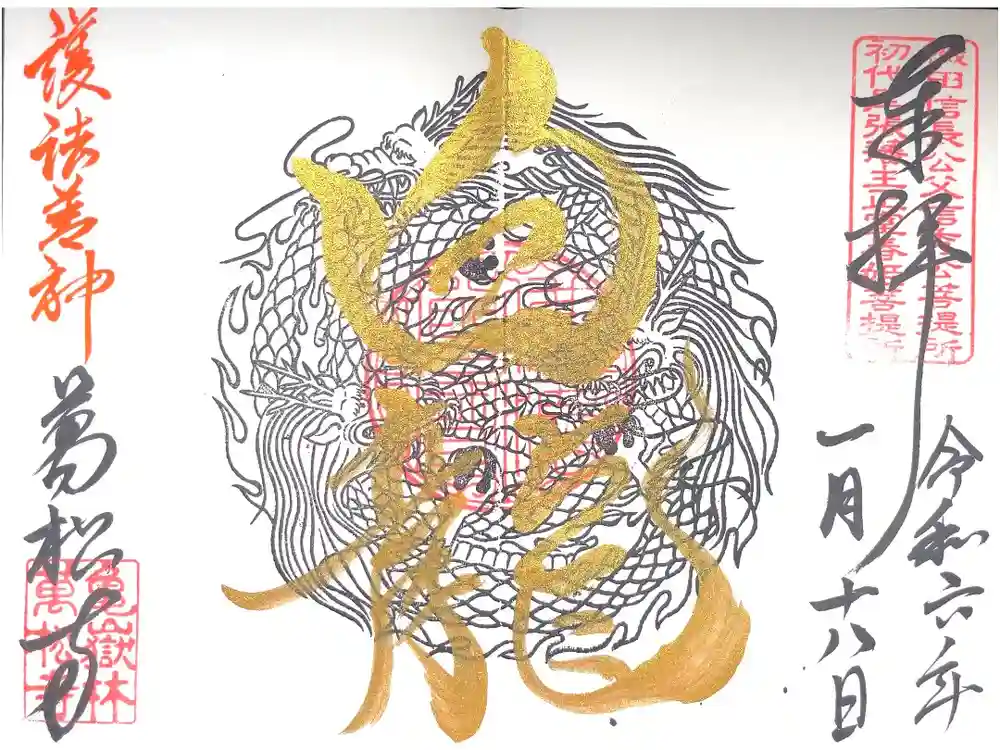 織田信長公父信秀公菩提所
初代尾張藩主正室春姫菩提所
奉拝
令和六年
一月十八日
白龍
護法善神
萬松寺
龜嶽林
萬松寺